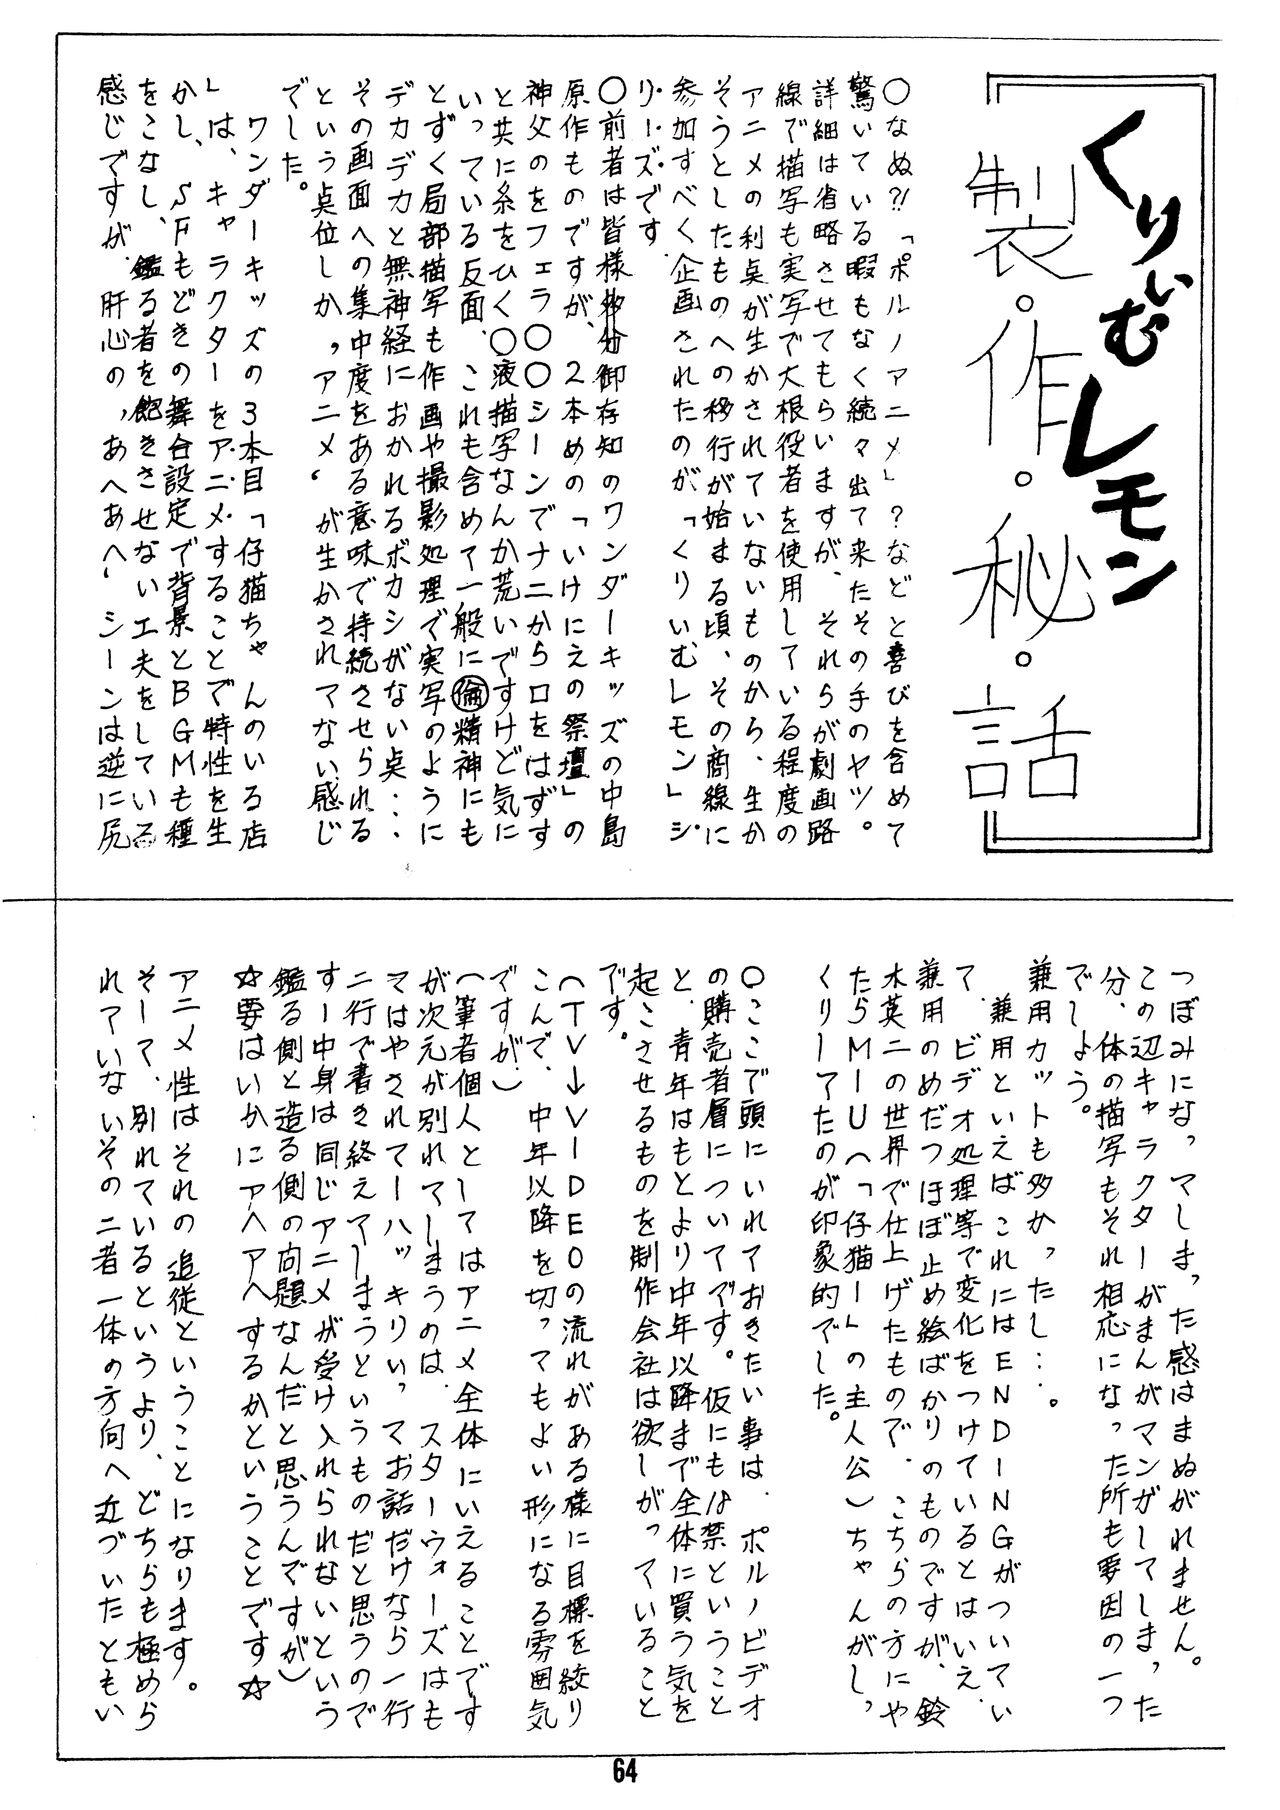 くりぃむレモン
製。作。秘。話
○なぬ?!「ポルノアニメ」?などと喜びを含めて
驚いている暇もなく続々出て来たその手のヤツ。
詳細は省略させてもらいますが、それらが劇画路
線で描写も実写で大根役者を使用している程度の
アニメの利点が生かされていないものから、生か
そうとしたものへの移行が始まる頃、その商線に
参加すべく企画されたのが、「くりいむレモン」シ
リーズです
○前者は皆様多分御存知のワンダーキッズの中島
原作ものですが、2本めの「いけにえの祭壇」の
神父のをフェラ○○シーンでナニから口をはずす
と共に糸をひく○液描写なんか荒いですけど気に
いっている反面、これも含めて一般に倫精神にも
とずく局部描写も作画や撮影処理で実写のように
デカデカと無神経におかれるボカシがない点・・・
その画面への集中度をある意味で持続させられる
という点位しか、〝アニメ〟が生かされてない感じ
でした。
ワンダーキッズの3本目「仔猫ちゃんのいる店
」は、キャラクターをア・ニ・メ・することで特性を生
かし、SFもどきの舞台設定で背景とBGMも種
をこなし、鑑る者を飽きさせない工夫をしている
感じですが、肝心の〝あへあへ〟シーンは逆に尻
つぼみになってしまった感はまぬがれません。
この辺キャラクターがまんがマンがしてしまった
分、体の描写もそれ相応になった所も要因の一つ
でしょう。
兼用カットも多かったし・・・。
兼用といえばこれにはENDINGがついてい
て、ビデオ処理等で変化をつけているとはいえ、
兼用のめだつほぼ止め絵ばかりのものですが、鈴
木英二の世界で仕上げたもので、こちらの方にや
たらMーU(「仔猫ー」の主人公)ちゃんがし、
くりしてたのが印象的でした。
○ここで頭にいれておきたい事は、ポルノビデオ
の購売者層についてです。仮にも18禁ということ
と、青年はもとより中年以降まで全体に買う気を
起こさせるものを制作会社は欲しがっていること
です。
(TV→VIDEOの流れがある様に目標を絞り
こんで、中年以降を切ってもよい形になる雰囲気
ですが)
(筆者個人としてはアニメ全体にいえることです
が次元が別れてしまうのは、スターウォーズはも
マはやされてーハッキりいってお話だけなら一行
二行で書き終えてしまうというものだと思うので
すー中身は同じアニメが受け入れられないという
鑑る側と造る側の問題なんだと思うんですが)
☆要はいかにアヘアヘするかということです☆
アニメ性はそれの追従ということになります。
そして、別れているというより、どちらも極めら
れていないその二者一体の方向へ近づいたともい
64